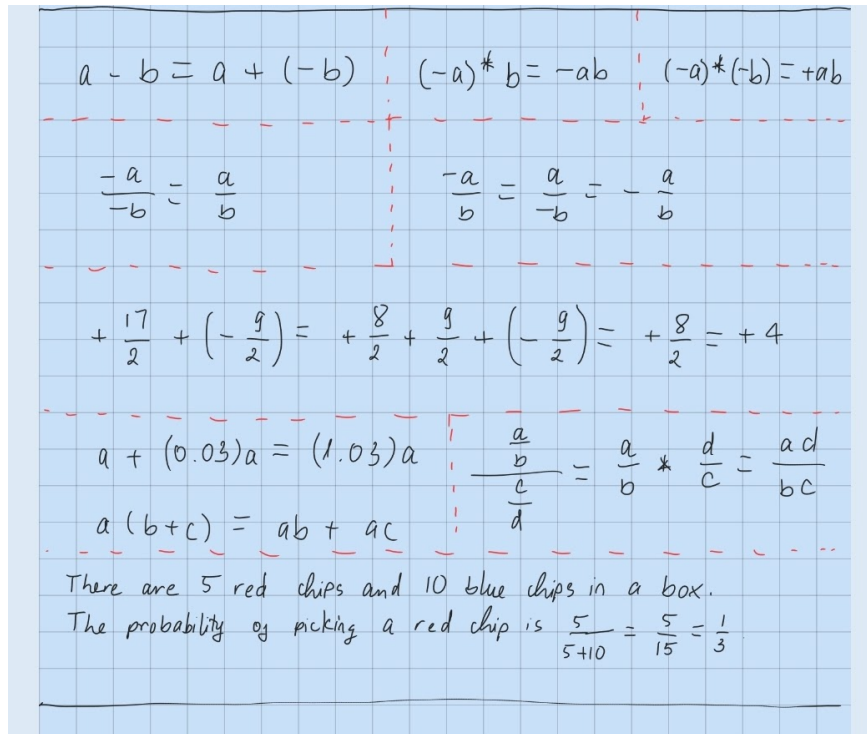 a - b = a + (-b)
(-a)* b = -ab
(-a)*(-b) = +ab
-a/-b = a/b
-a/b = a/-b = - a/b
+ 17/2 + (- 9/2) = + 8/2 + 9/2 + (- 9/2) = + 8/2 = + 4
a + (0.03)a = (1.03)a
a (b+c) = ab + ac
(a/b)/(c/d) = a/b * d/c = ad/bc
There are 5 red chips and 10 blue chips in a box.
The probability of picking a red chip is 5/(5+10) = 5/15 = 1/3.